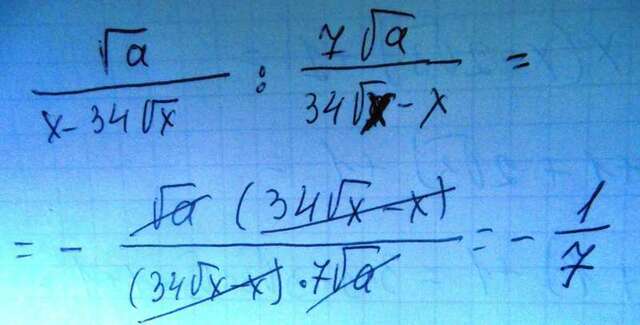 √a / (x - 34√x) : 7√a / (34√x - x) =
= - √a (34√x - x) / (34√x - x) · 7√a = - 1/7